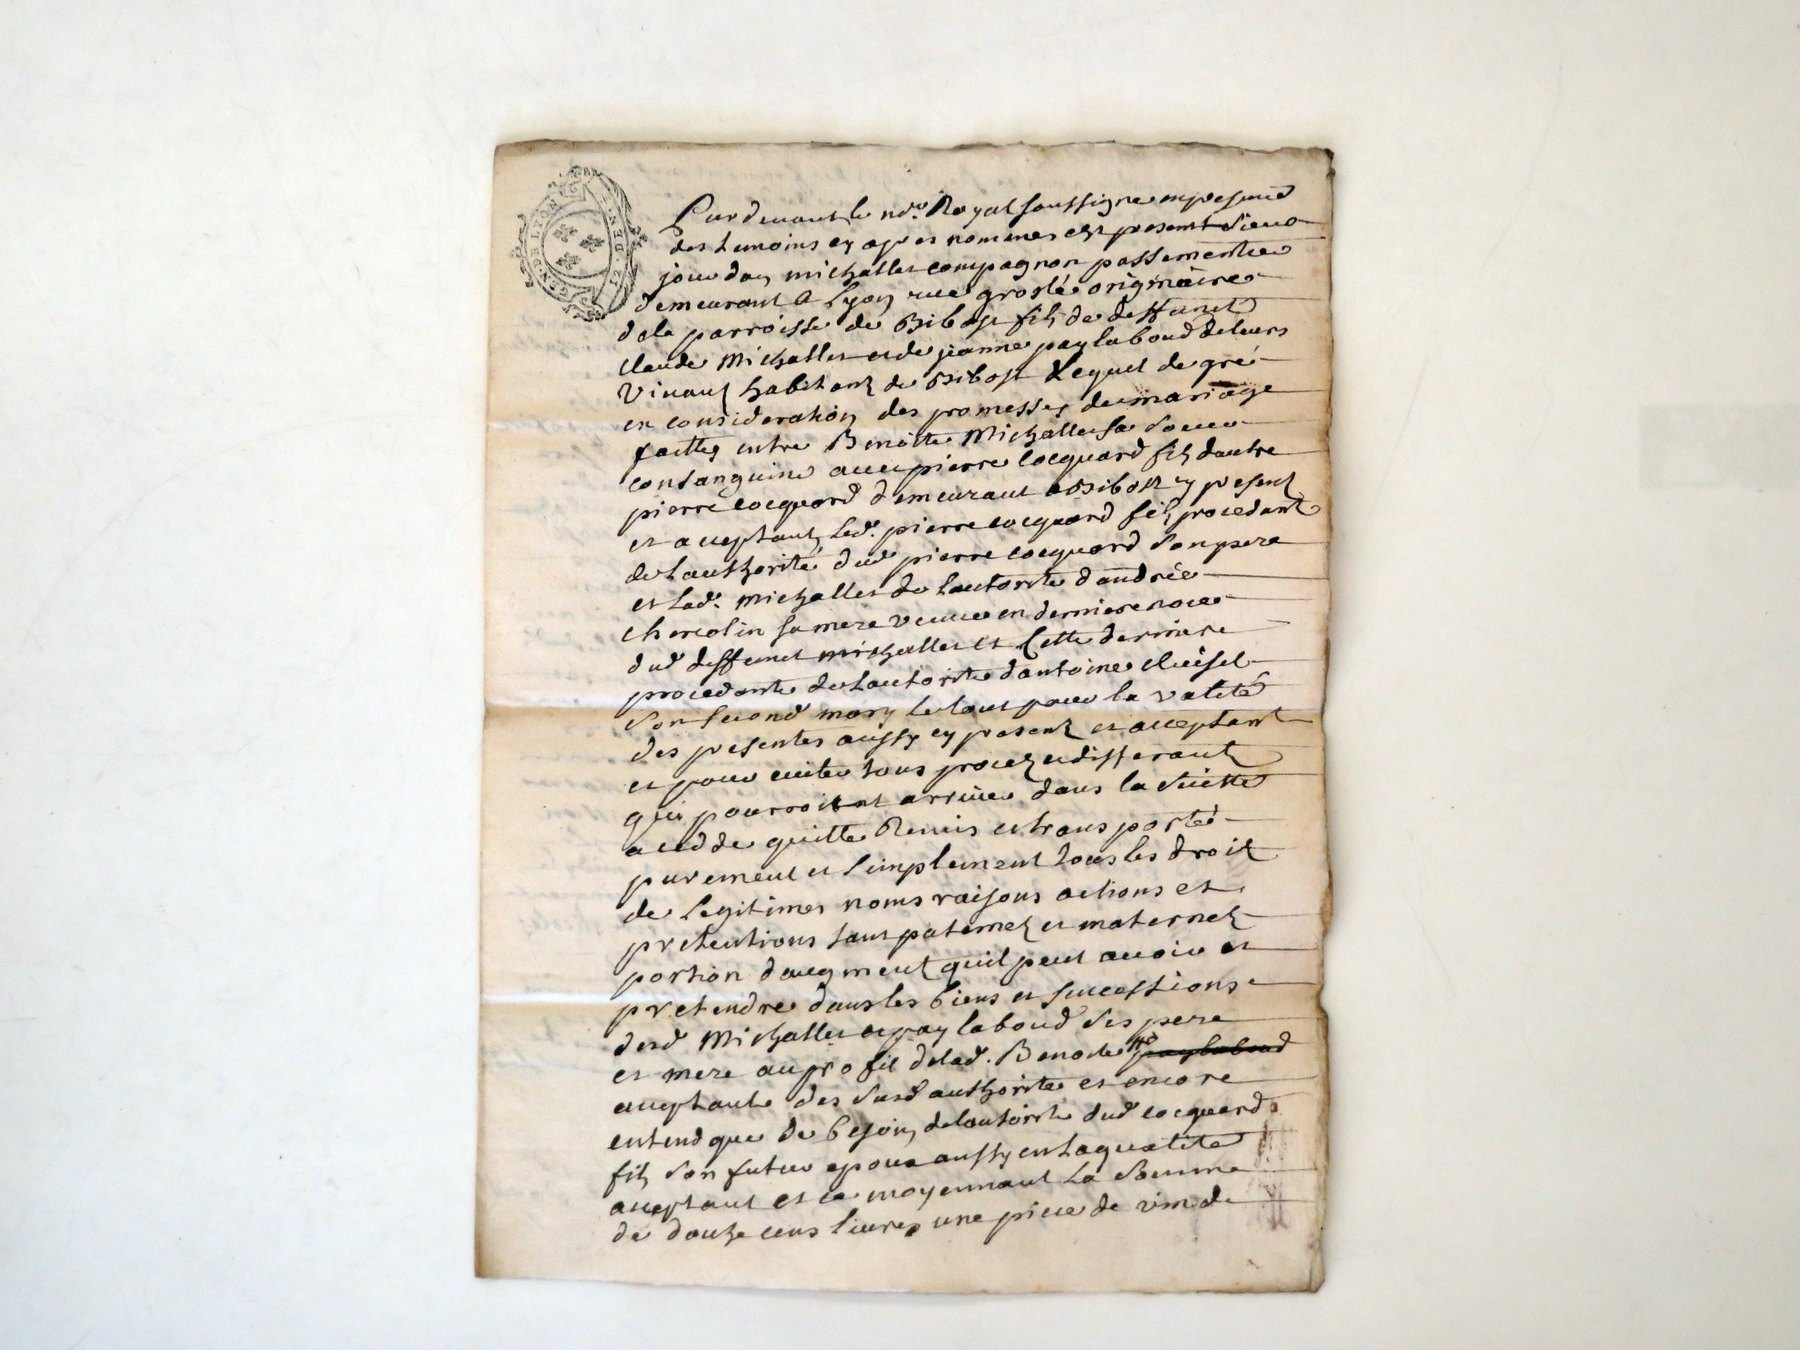 GEN DE LYON
Pardevant le no.re Royal soussigné en presence
des temoins cy apres nommes est present Sieur
jourdan michallet compagnon passementier
demeurant a Lyon rue grolée originaire
dela parroisse de Bibost fils de deffunct
Claude Michallet et de jeanne paylaboud de leurs
Vivant habitants de Bibost Lequel de gré
en consideration des promesses de mariage
faittes entre Benoitte Michallet sa soeur
consanguine avec pierre cocquard fils dautre
pierre cocquard demeurant a Bibost cy present
et acceptant, led. pierre cocquard fils procedant
de lauthorité dud pierre cocquard son pere
et lad. michallet de lautorité dandrée
sa mere veuve en derniere noces
dud deffunct michallet et Cette derniere
procedante de lautorité dantoine
son second mary le tout pour la validité
des presentes aussy cy present et acceptant
et pour eviter tous procez et differants
qui pourroient arriver dans la suitte
a cedde quitte Remis et transporté
purement et simplement tous les droits
de legitimes noms raisons actions et
pretentions tant paternels et maternels
portion daugment quil peut avoir et
pretendre dans les biens et successions
desd Michallet et paylaboud ses pere
et mere au profit de lad. Benoite paylaboud
acceptante des susd authorité et encore
entend que de besoin de lautorité dud cocquard
fils son futur epoux aussy en sa qualité
acceptant et ce moyennant La Somme
de douze cens livres une piece de vin de